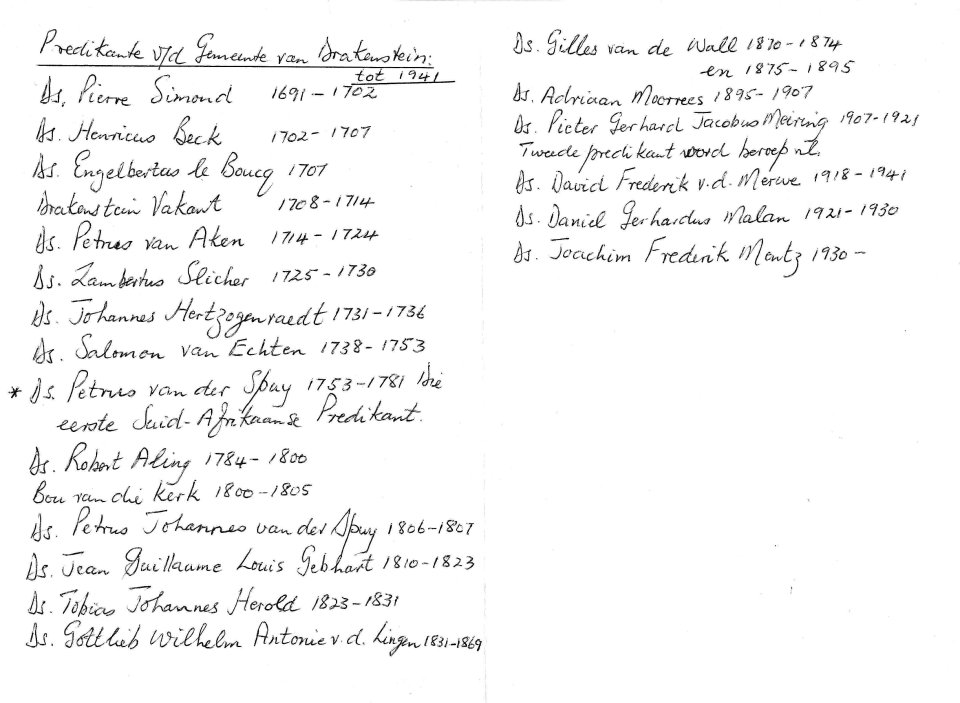 Predikante v/d Gemeente van Drakenstein:
tot 1941
Ds. Pierre Simond 1691-1702
Ds. Henricus Beck 1702-1707
Ds. Engelbertus le Boucq 1707
Drakenstein Vakant 1708-1714
Ds. Petrus van Aken 1714-1724
Ds. Lambertus Slicher 1725-1730
Ds. Johannes Hertzogenraedt 1731-1736
Ds. Salomon van Echten 1738-1753
* Ds. Petrus van der Spuy 1753-1781 Die
eerste Suid-Afrikaanse Predikant.
Ds. Robert Aling 1784-1800
Bou van die Kerk 1800-1805
Ds. Petrus Johannes van der Spuy 1806-1807
Ds. Jean Guillaume Louis Gebhart 1810-1823
Ds. Tobias Johannes Herold 1823-1831
Ds. Gottlieb Wilhelm Antonie v.d. Lingen 1831-1869
Ds. Gilles van de Wall 1870-1874
en 1875-1895
Ds. Adriaan Moorrees 1895-1907
Ds. Pieter Gerhard Jacobus Meiring 1907-1921
Tweede predikant word beroep nl.
Ds. David Frederik v.d. Merwe 1918-1941
Ds. Daniel Gerhardus Malan 1921-1930
Ds. Joachim Frederik Mentz 1930-